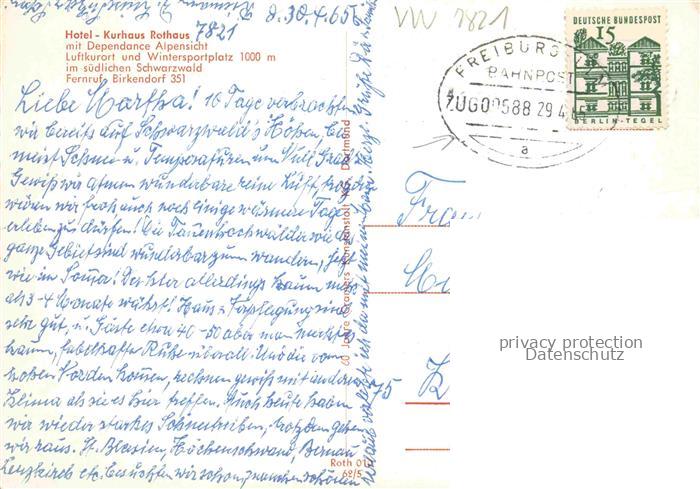 d. 30.4.65
VW 7821
Hotel - Kurhaus Rothaus 7821
mit Dependance Alpensicht
Luftkurort und Wintersportplatz 1000 m
im südlichen Schwarzwald
Fernruf: Birkendorf 351
DEUTSCHE BUNDESPOST
15
BERLIN-TEGEL
FREIBURG
BAHNPOST
ZUG 09588 29.4.
a
Liebe Martha! 10 Tage verbrachten
wir bereits auf Schwarzwald's Höhen, bei
meist Schnee u. Temperaturen um Null Grad.
Gewiß wir atmen wunderbare reine Luft, trotzdem
wären wir froh auch noch einige wärmere Tage
erleben zu dürfen! Die Tannenhochwälder wie d.
ganze Gebiet sind wunderbar zum wandern, jetzt
wie im Sommer! Der hier allerdings kaum mehr
als 3-4 Monate währt! Haus u. Verpflegung sind
sehr gut, u. Gäste etwa 40-50 aber man merkt es
kaum, fabelhafte Ruhe überall. Und die vom
hohen Norden kommen, rechnen gewiß mit anderem
Klima als sie es hier treffen. Auch heute haben
wir wieder starkes Schneetreiben, trotzdem gehen
wir raus. St. Blasien, Höchenschwand, Bernau
Lenzkirch etc. besuchten wir schon,
60 Jahre Gramers Kunstanstalt KG, Dortmund
Roth 01
62/5
Frau
75
privacy protection
Datenschutz